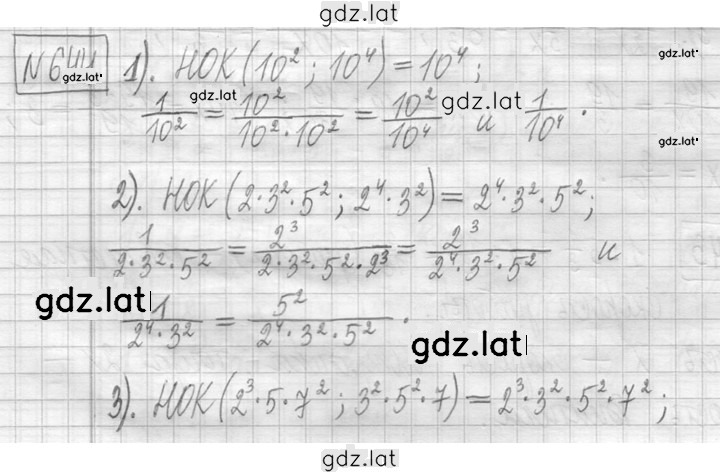 gdz.lat
№ 641 1). НОК(10²; 10⁴) = 10⁴;
gdz.lat gdz.lat gdz.lat gdz.lat
1/10² = 10²/(10²·10²) = 10²/10⁴ и 1/10⁴.
gdz.lat
2). НОК(2·3²·5²; 2⁴·3²) = 2⁴·3²·5²;
1/(2·3²·5²) = 2³/(2·3²·5²·2³) = 2³/(2⁴·3²·5²) и
gdz.lat
1/(2⁴·3²) = 5²/(2⁴·3²·5²).
gdz.lat
3). НОК(2³·5·7²; 3²·5²·7) = 2³·3²·5²·7²;
gdz.lat